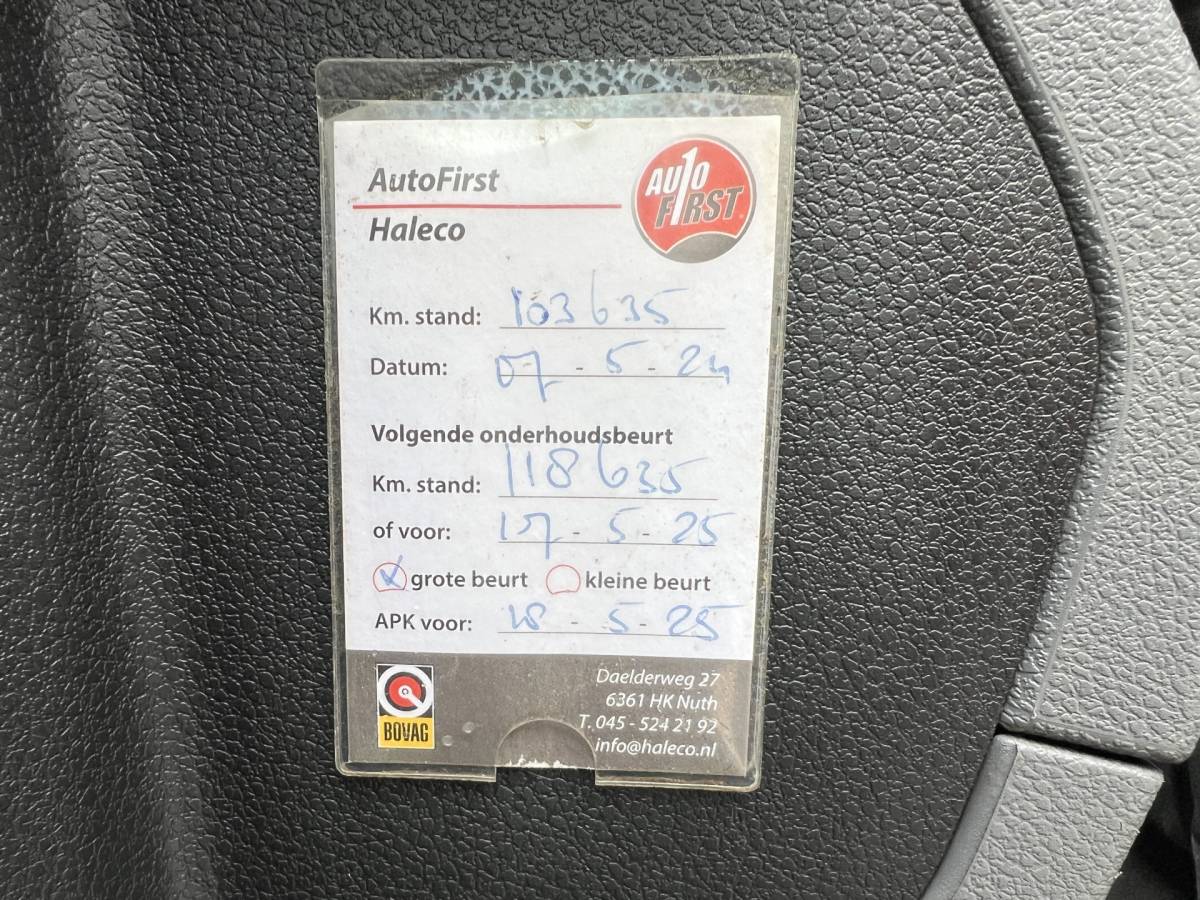 AutoFirst
AU1O
F1RST
Haleco
Km. stand: 103635
Datum: 07 - 5 - 24
Volgende onderhoudsbeurt
Km. stand: 118635
of voor: 07 - 5 - 25
grote beurt kleine beurt
APK voor: 18 - 5 - 25
BOVAG
Daelderweg 27
6361 HK Nuth
T. 045 - 524 21 92
info@haleco.nl